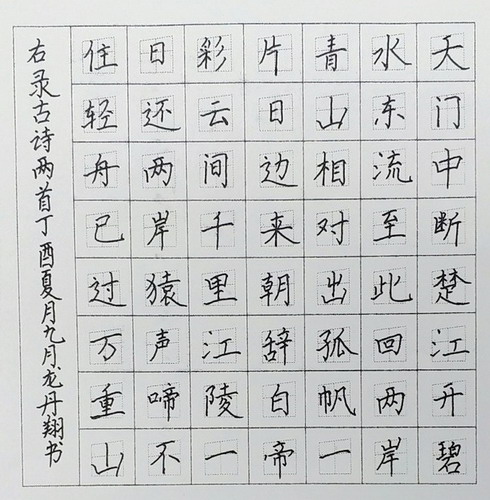 天门中断楚江开碧
水东流至此回两岸
青山相对出孤帆一
片日边来朝辞白帝
彩云间千里江陵一
日还两岸猿声啼不
住轻舟已过万重山
右录古诗两首丁酉夏月九月龙丹翔书